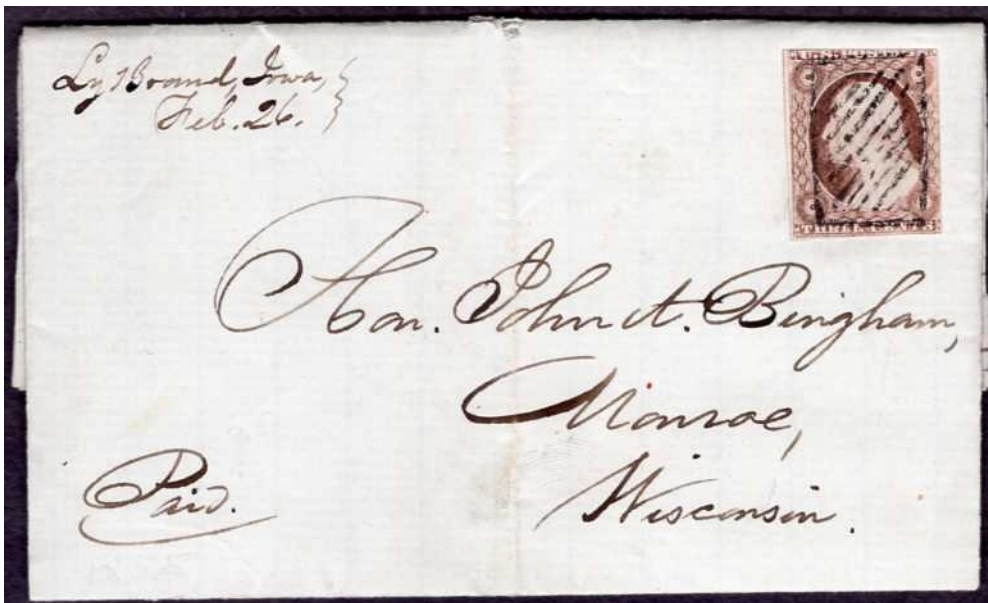 LyBrand, Iowa,
Feb. 26.
THREE CENTS
Hon. John A. Bingham,
Monroe,
Wisconsin.
Paid.